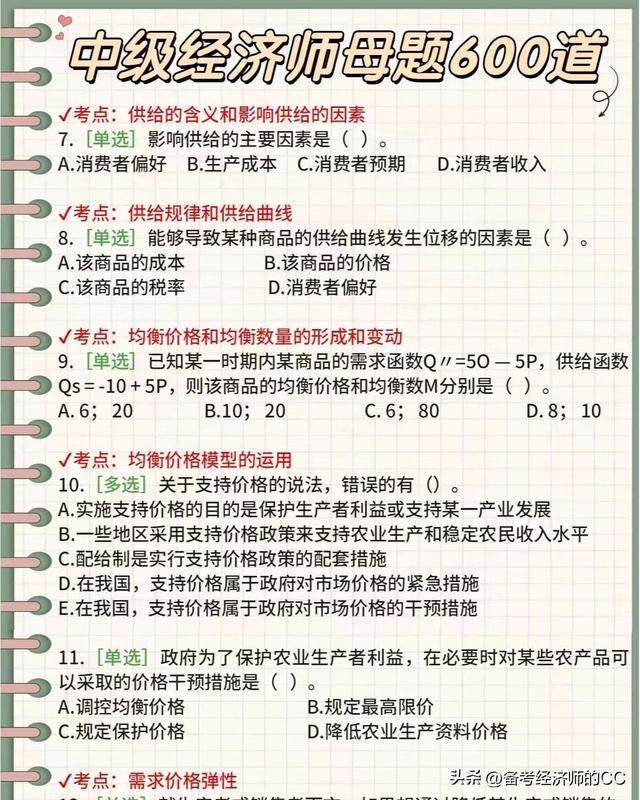 中级经济师母题600道
✓考点：供给的含义和影响供给的因素
7.［单选］影响供给的主要因素是（ ）。
A.消费者偏好 B.生产成本 C.消费者预期 D.消费者收入
✓考点：供给规律和供给曲线
8.［单选］能够导致某种商品的供给曲线发生位移的因素是（ ）。
A.该商品的成本 B.该商品的价格
C.该商品的税率 D.消费者偏好
✓考点：均衡价格和均衡数量的形成和变动
9.［单选］已知某一时期内某商品的需求函数Q〃=5O — 5P，供给函数
Qs = -10 + 5P，则该商品的均衡价格和均衡数M分别是（ ）。
A. 6； 20 B.10； 20 C. 6； 80 D. 8； 10
✓考点：均衡价格模型的运用
10.［多选］关于支持价格的说法，错误的有（）。
A.实施支持价格的目的是保护生产者利益或支持某一产业发展
B.一些地区采用支持价格政策来支持农业生产和稳定农民收入水平
C.配给制是实行支持价格政策的配套措施
D.在我国，支持价格属于政府对市场价格的紧急措施
E.在我国，支持价格属于政府对市场价格的干预措施
11.［单选］政府为了保护农业生产者利益，在必要时对某些农产品可
以采取的价格干预措施是（ ）。
A.调控均衡价格 B.规定最高限价
C.规定保护价格 D.降低农业生产资料价格
✓考点：需求价格弹性
头条 @备考经济师的CC